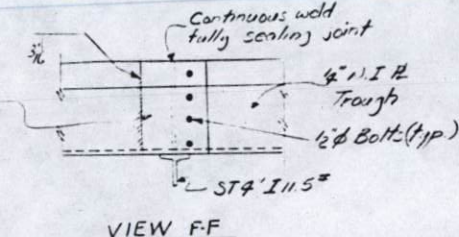 Continuous weld
fully sealing joint
3/16
1/4" W.I PL
Trough
1/2" φ Bolts (typ.)
ST 4" I 11.5#
VIEW F-F